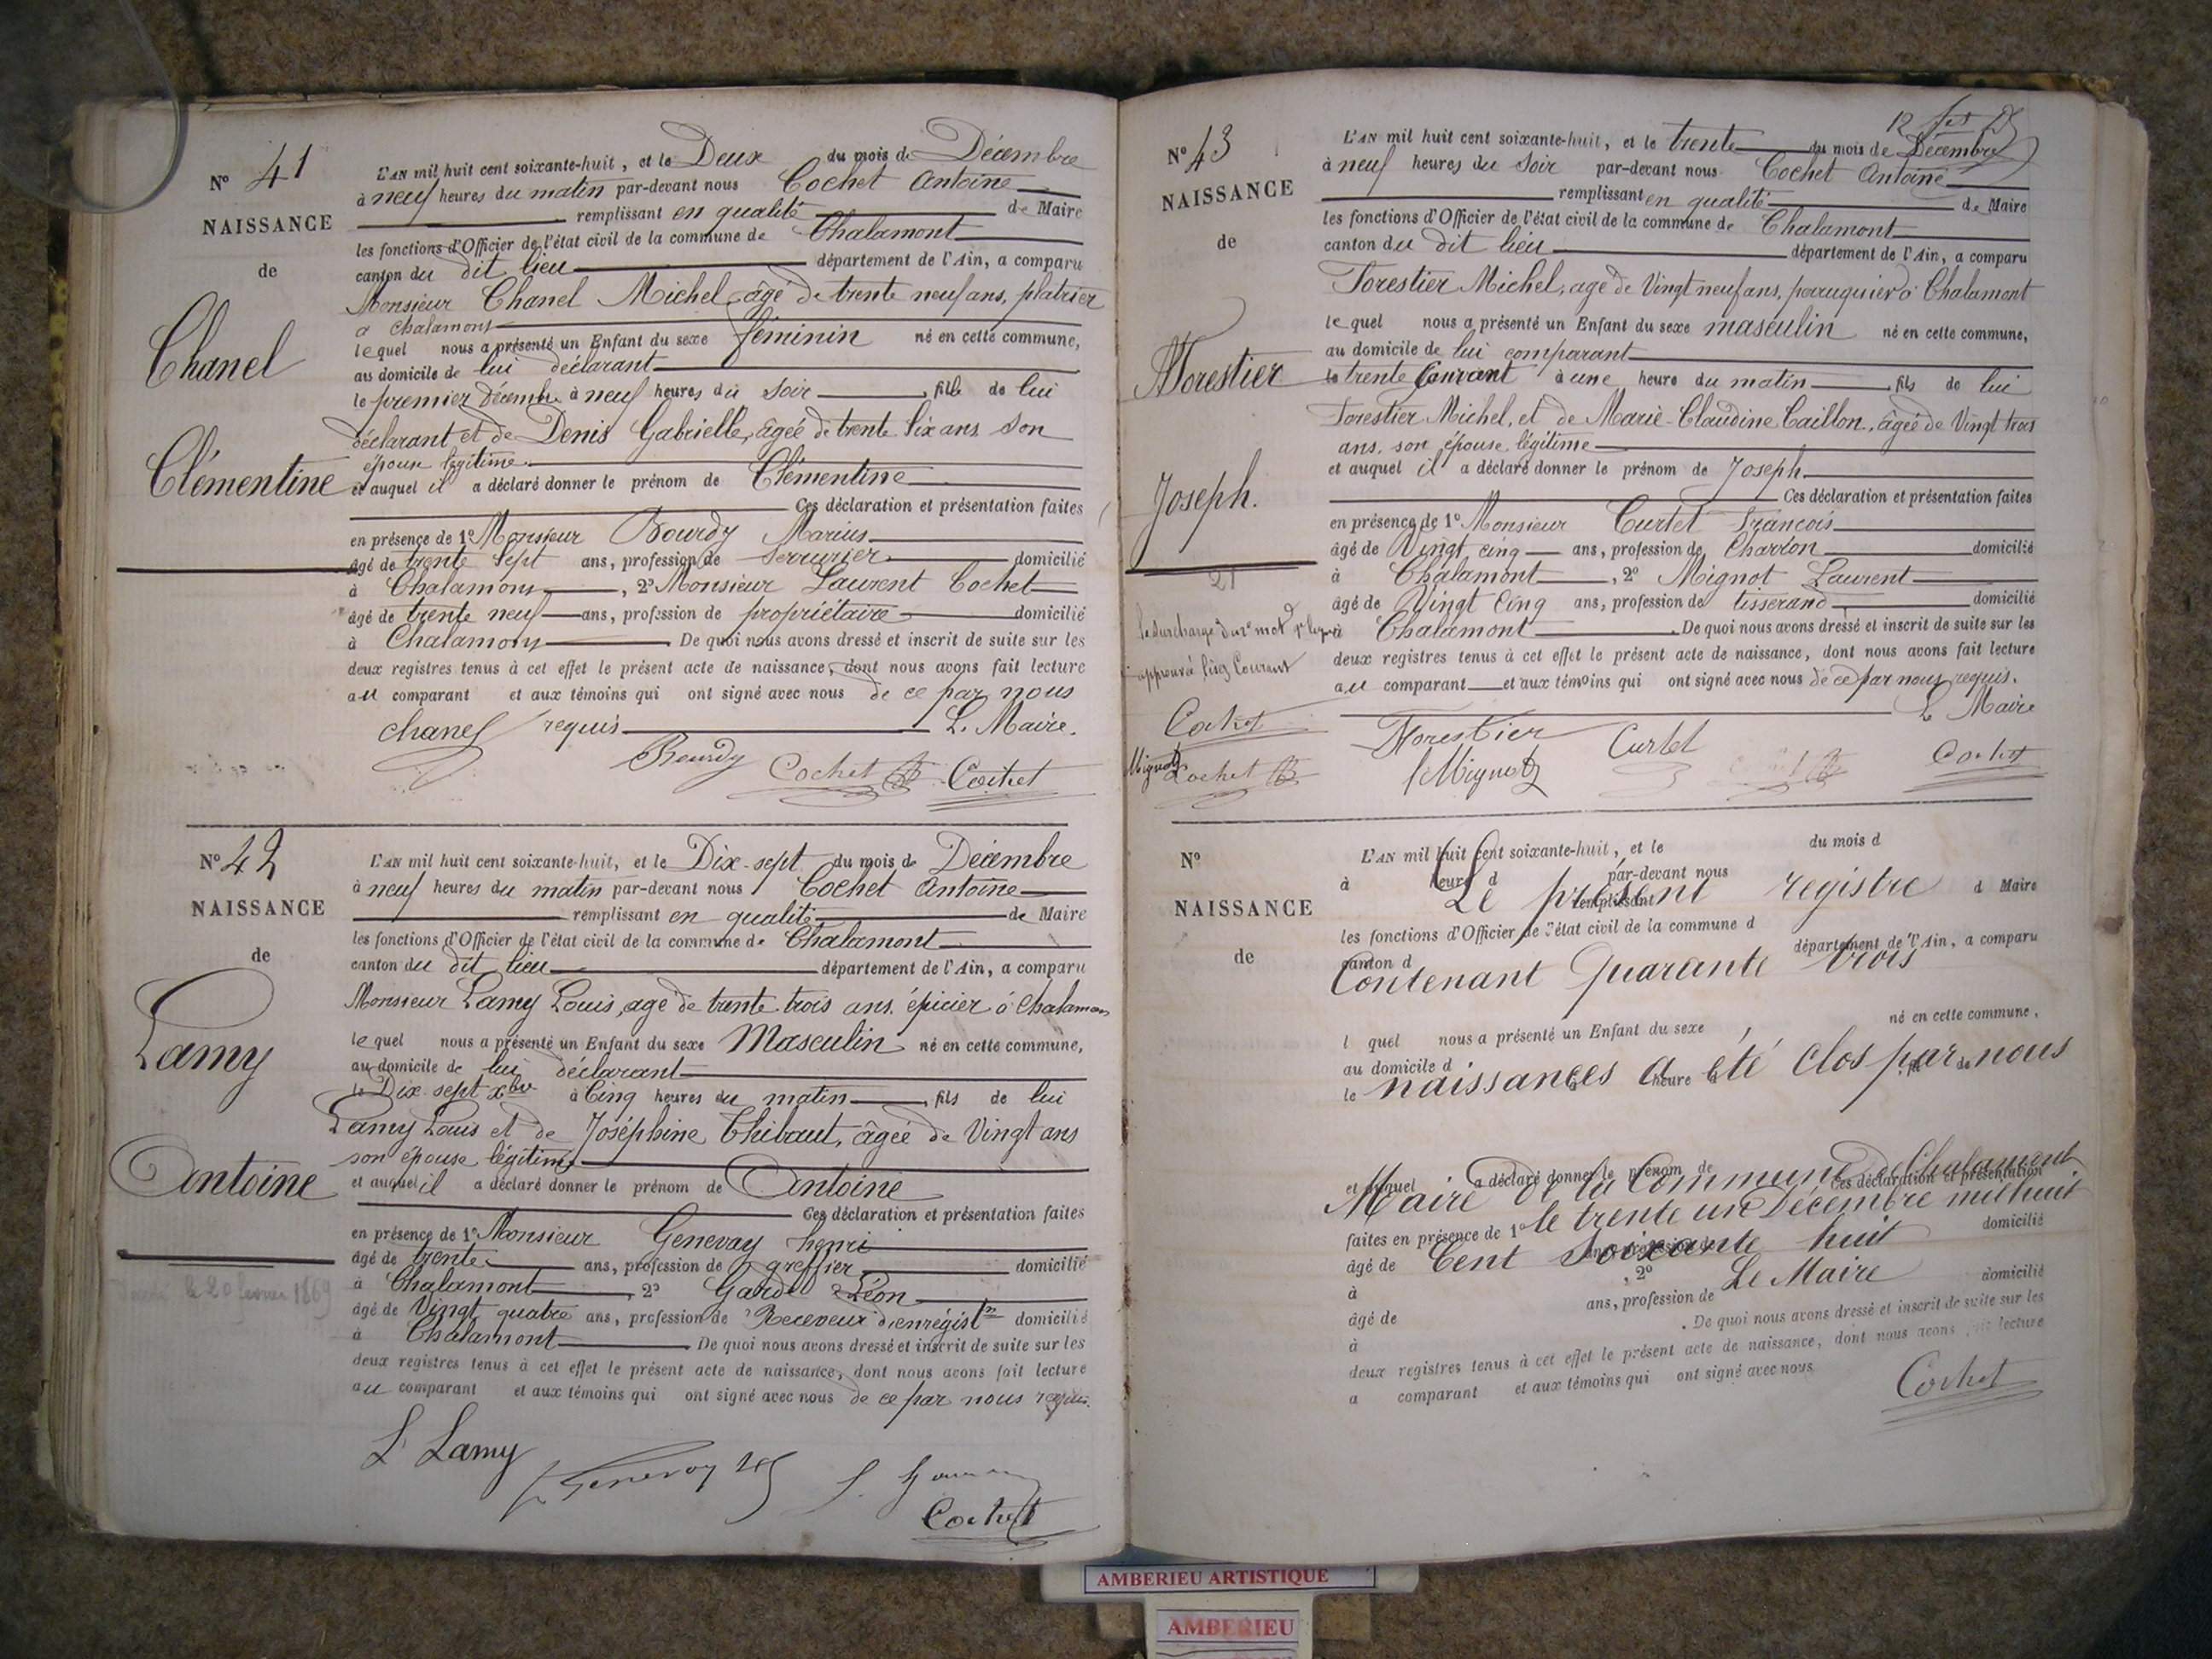 N° 41
NAISSANCE
de
Chanel
Clémentine
L'AN mil huit cent soixante-huit, et le Deux du mois de Décembre
à neuf heures du matin par-devant nous Cochet Antoine
remplissant en qualité de Maire
les fonctions d'Officier de l'état civil de la commune de Chalamont
canton du dit lieu département de l'Ain, a comparu
Monsieur Chanel Michel, âgé de trente neuf ans, platrier
à Chalamont
lequel nous a présenté un Enfant du sexe féminin né en cette commune,
au domicile de lui déclarant
le premier décembre à neuf heures du soir, fille de lui
déclarant et de Denis Gabrielle, âgée de trente six ans son
épouse légitime
et auquel il a déclaré donner le prénom de Clémentine
Ces déclaration et présentation faites
en présence de 1° Monsieur Bourdy Marius
âgé de trente sept ans, profession de serrurier domicilié
à Chalamont, 2° Monsieur Laurent Cochet
âgé de trente neuf ans, profession de propriétaire domicilié
à Chalamont De quoi nous avons dressé et inscrit de suite sur les
deux registres tenus à cet effet le présent acte de naissance, dont nous avons fait lecture
au comparant et aux témoins qui ont signé avec nous de ce par nous
requis L. Maire.
chanel Bourdy Cochet Cochet
N° 42
NAISSANCE
de
Lamy
Antoine
L'AN mil huit cent soixante-huit, et le Dix-sept du mois de Décembre
à neuf heures du matin par-devant nous Cochet Antoine
remplissant en qualité de Maire
les fonctions d'Officier de l'état civil de la commune de Chalamont
canton du dit lieu département de l'Ain, a comparu
Monsieur Lamy Louis, age de trente trois ans. épicier à Chalamont
lequel nous a présenté un Enfant du sexe Masculin né en cette commune,
au domicile de lui déclarant
le Dix-sept xbre à Cinq heures du matin, fils de lui
Lamy Louis et de Joséphine Thibaut, âgée de Vingt ans
son épouse légitime
et auquel il a déclaré donner le prénom de Antoine
Ces déclaration et présentation faites
en présence de 1° Monsieur Genevay henri
âgé de trente ans, profession de greffier domicilié
à Chalamont, 2° Garde Léon
âgé de Vingt quatre ans, profession de Receveur d'enregistre domicilié
à Chalamont De quoi nous avons dressé et inscrit de suite sur les
deux registres tenus à cet effet le présent acte de naissance, dont nous avons fait lecture
au comparant et aux témoins qui ont signé avec nous de ce par nous requis.
le 20 1869
L Lamy
Genevay
Cochet
N° 43
NAISSANCE
de
Forestier
Joseph.
L'AN mil huit cent soixante-huit, et le trente du mois de Décembre
à neuf heures du soir par-devant nous Cochet Antoine
remplissant en qualité de Maire
les fonctions d'Officier de l'état civil de la commune de Chalamont
canton du dit lieu département de l'Ain, a comparu
Forestier Michel, age de Vingt neuf ans, perruquier à Chalamont
lequel nous a présenté un Enfant du sexe masculin né en cette commune,
au domicile de lui comparant
le trente Courant à une heure du matin, fils de lui
Forestier Michel, et de Marie-Claudine Caillon, âgée de Vingt trois
ans, son épouse légitime
et auquel il a déclaré donner le prénom de Joseph
Ces déclaration et présentation faites
en présence de 1° Monsieur Curtet François
âgé de Vingt cinq ans, profession de Charron domicilié
à Chalamont, 2° Mignot Laurent
âgé de Vingt Cinq ans, profession de tisserand domicilié
à Chalamont. De quoi nous avons dressé et inscrit de suite sur les
deux registres tenus à cet effet le présent acte de naissance, dont nous avons fait lecture
au comparant et aux témoins qui ont signé avec nous de ce par nous requis.
L Maire
21
approuvé Courant
Cochet
Mignot
Cochet
Forestier Curtet Cochet
Mignot
N°
NAISSANCE
de
L'AN mil huit cent soixante-huit, et le du mois d
à heure d par-devant nous
Le présent registre
remplissant d Maire
les fonctions d'Officier de l'état civil de la commune d
canton d département de l'Ain, a comparu
Contenant Quarante trois
l quel nous a présenté un Enfant du sexe né en cette commune,
au domicile d
le à heure d , fil de
naissances a été clos par nous
et auquel a déclaré donner le prénom de
Maire de la Commune de Chalamont
Ces déclaration et présentation
faites en présence de 1° le trente un Décembre mil huit
âgé de ans, profession de domicilié
Cent soixante huit
à , 2° Le Maire
âgé de ans, profession de domicilié
à . De quoi nous avons dressé et inscrit de suite sur les
deux registres tenus à cet effet le présent acte de naissance, dont nous avons fait lecture
a comparant et aux témoins qui ont signé avec nous
Cochet
AMBERIEU ARTISTIQUE
AMBERIEU